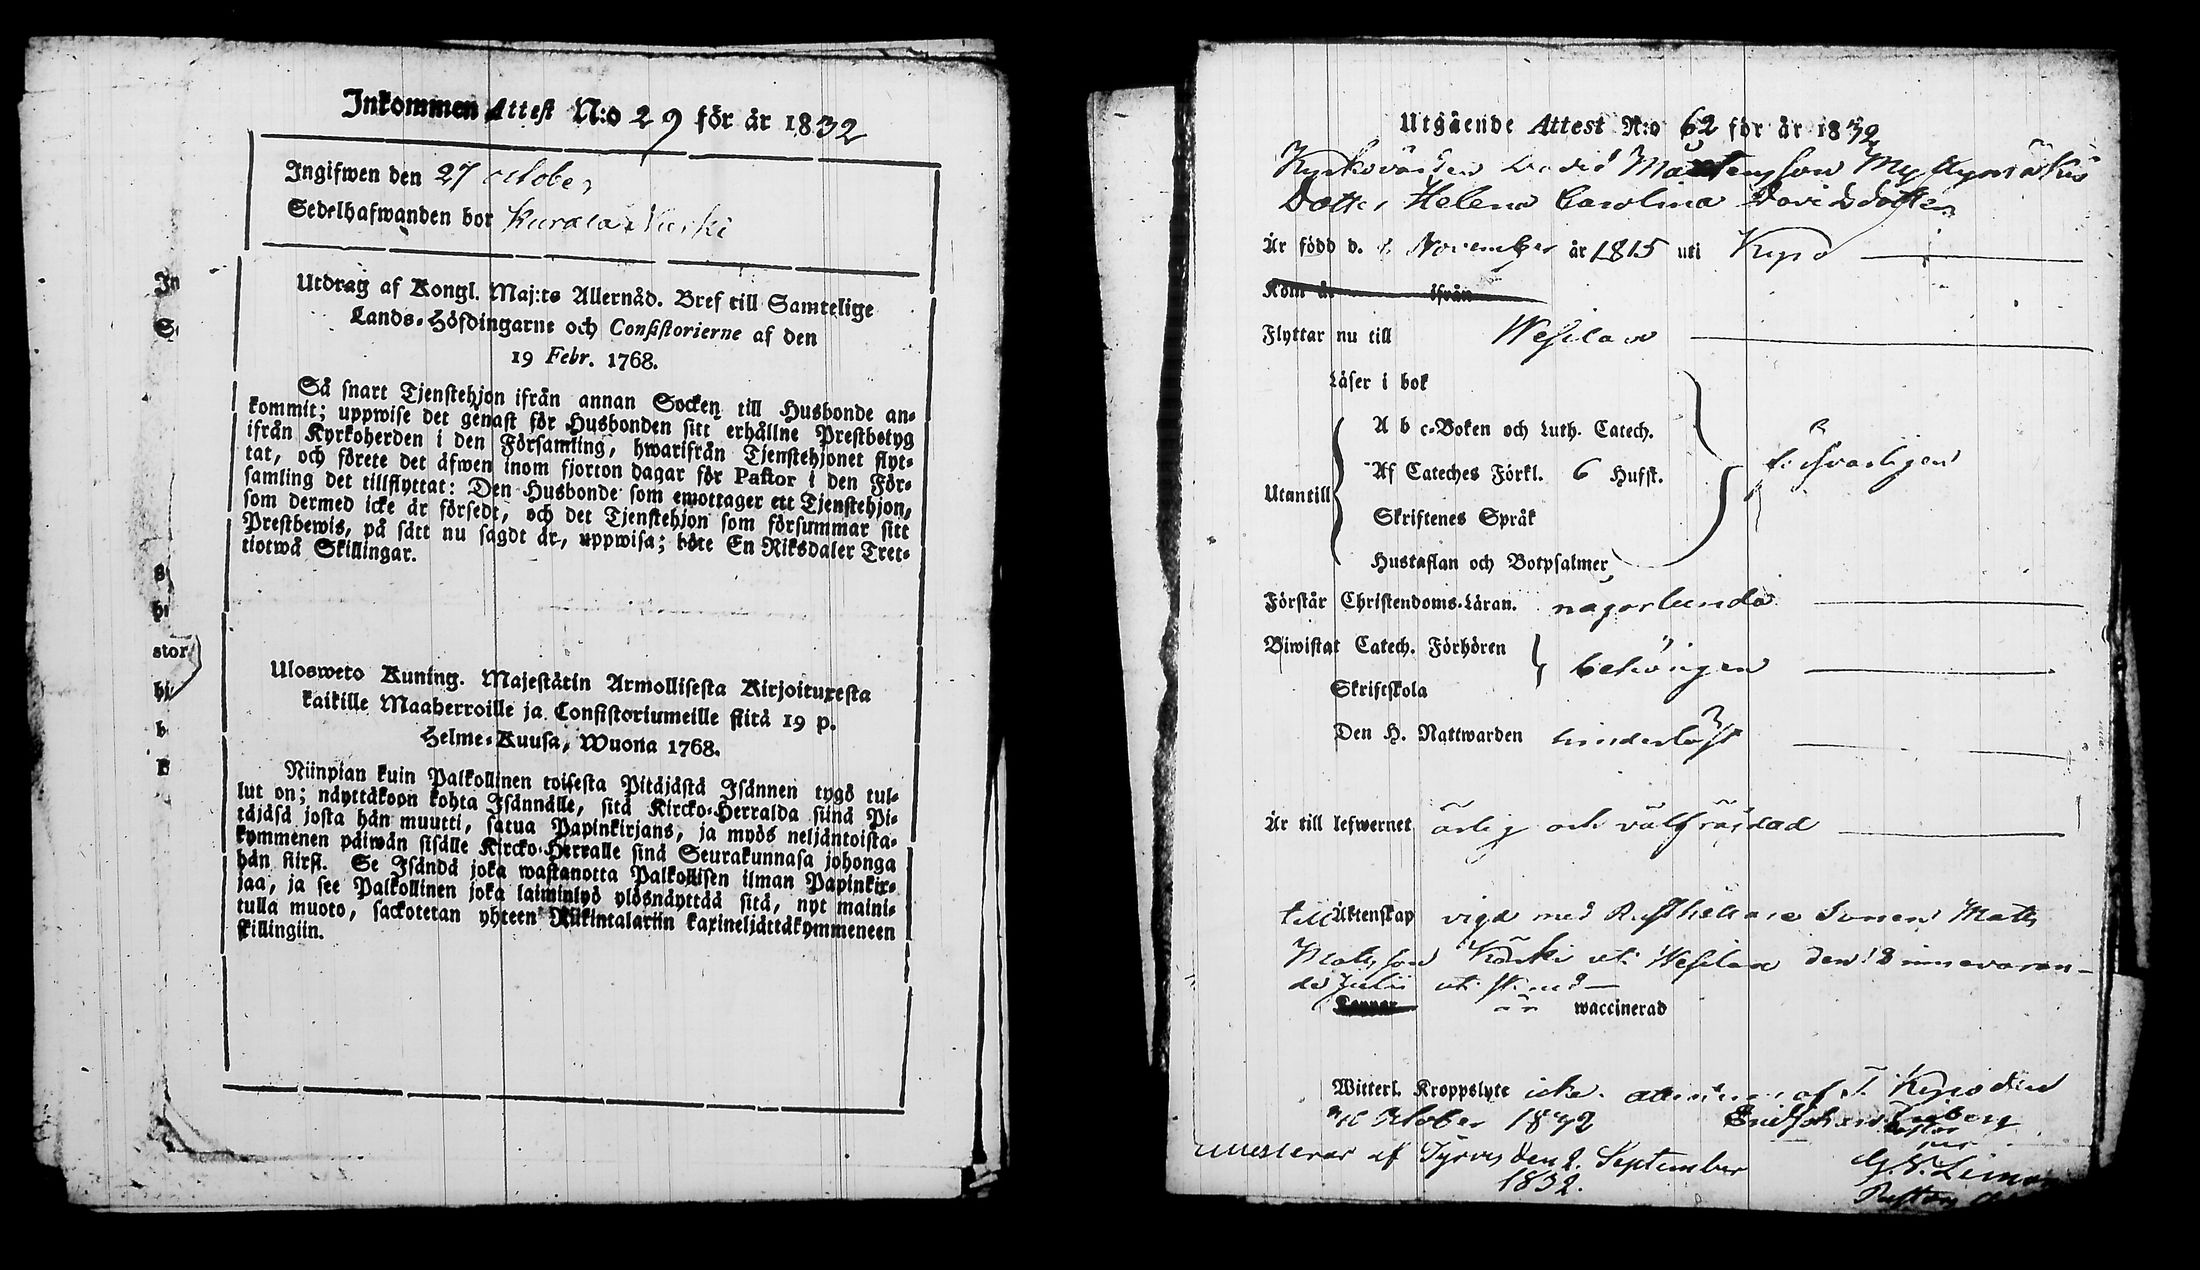 Inkommen Attest N:o 29 för år 1832
Ingifwen den 27 october
Sedelhafwanden bor
Utdrag af Kongl. Maj:ts Allernåd. Bref till Samtelige
Lands-Höfdingarne och Consistorierne af den
19 Febr. 1768.
Så snart Tjenstehjon ifrån annan Socken till Husbonde an-
kommit; uppwise det genast för Husbonden sitt erhållne Prestbetyg
ifrån Kyrkoherden i den Församling, hwarifrån Tjenstehjonet flyt-
tat, och förete det äfwen inom fjorton dagar för Pastor i den För-
samling det tillflyttat: Den Husbonde som emottager ett Tjenstehjon,
som dermed icke är försedt, och det Tjenstehjon som försummar sitt
Prestbewis, på sätt nu sagdt är, uppwisa; böte En Riksdaler Tret-
tiotwå Skillingar.
Ulosweto Kuning. Majestätin Armollisesta Kirjoituxesta
kaikille Maaherroille ja Consistoriumeille siitä 19 p.
Helme-Kuusa, Wuona 1768.
Niinpian kuin Palkollinen toisesta Pitäjästä Isännen tygö tul-
lut on; näyttäkoon kohta Isännälle, sitä Kircko-Herralda siinä Pi-
täjäsä josta hän muutti, saatua Papinkirjans, ja myös neljäntoista-
kymmenen päiwän sisälle Kircko-Herralle siinä Seurakunnasa johonga
hän siirsi. Se Isändä joka wastanotta Palkollisen ilman Papinkir-
jaa, ja see Palkollinen joka laiminlyö ylösnäyttää sitä, nyt maini-
tulla muoto, sackotetan yhteen Riikintalariin kaxineljättäkymmeneen
skillingiin.
Utgående Attest N:o 62 för år 1832
Kyrkovärden David Mårtensson
Dotter Helena Carolina Davidsdotter
Är född d. November år 1815 uti Kyro
Kom år ifrån
Flyttar nu till Wesilax
Läser i bok
A b c-Boken och Luth. Catech.
Af Cateches Förkl. 6 Hufst.
Utantill
Skriftenes Språk
Hustaflan och Botpsalmer
försvarligen
Förstår Christendoms-Läran. någorlunda
Biwistat Catech. Förhören
behörigen
Skriftskola
Den H. Nattwarden
Är till lefwernet ärlig och välfräjdad
till Äktenskap vigd med Rusthållare Sonen Matts
Matsson Körki uti Wesilax den 18 innevaran-
de Julii uti
Koppor är waccinerad
Witterl. Kroppslyte icke. af Kyro den
October 1832
af Tyrvis den 2. September
1832.